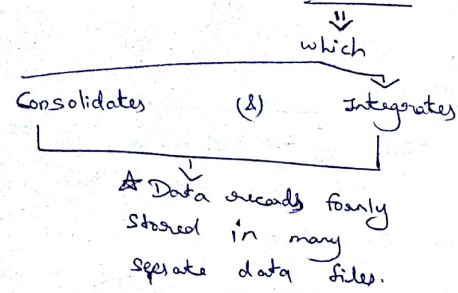 which
Consolidates (&) Integrates
☆ Data records formly
stored in many
seperate data files.